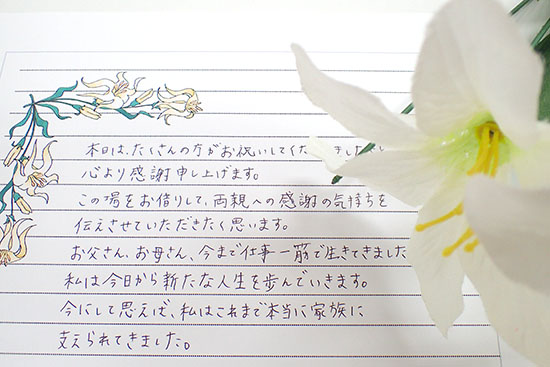 本日は、たくさんの方がお祝いしてくだ
心より感謝申し上げます。
この場をお借りして、両親への感謝の気持ちを
伝えさせていただきたく思います。
お父さん、お母さん、今まで仕事一筋で生きてきました
私は今日から新たな人生を歩んでいきます。
今にして思えば、私はこれまで本当に家族に
支えられてきました。